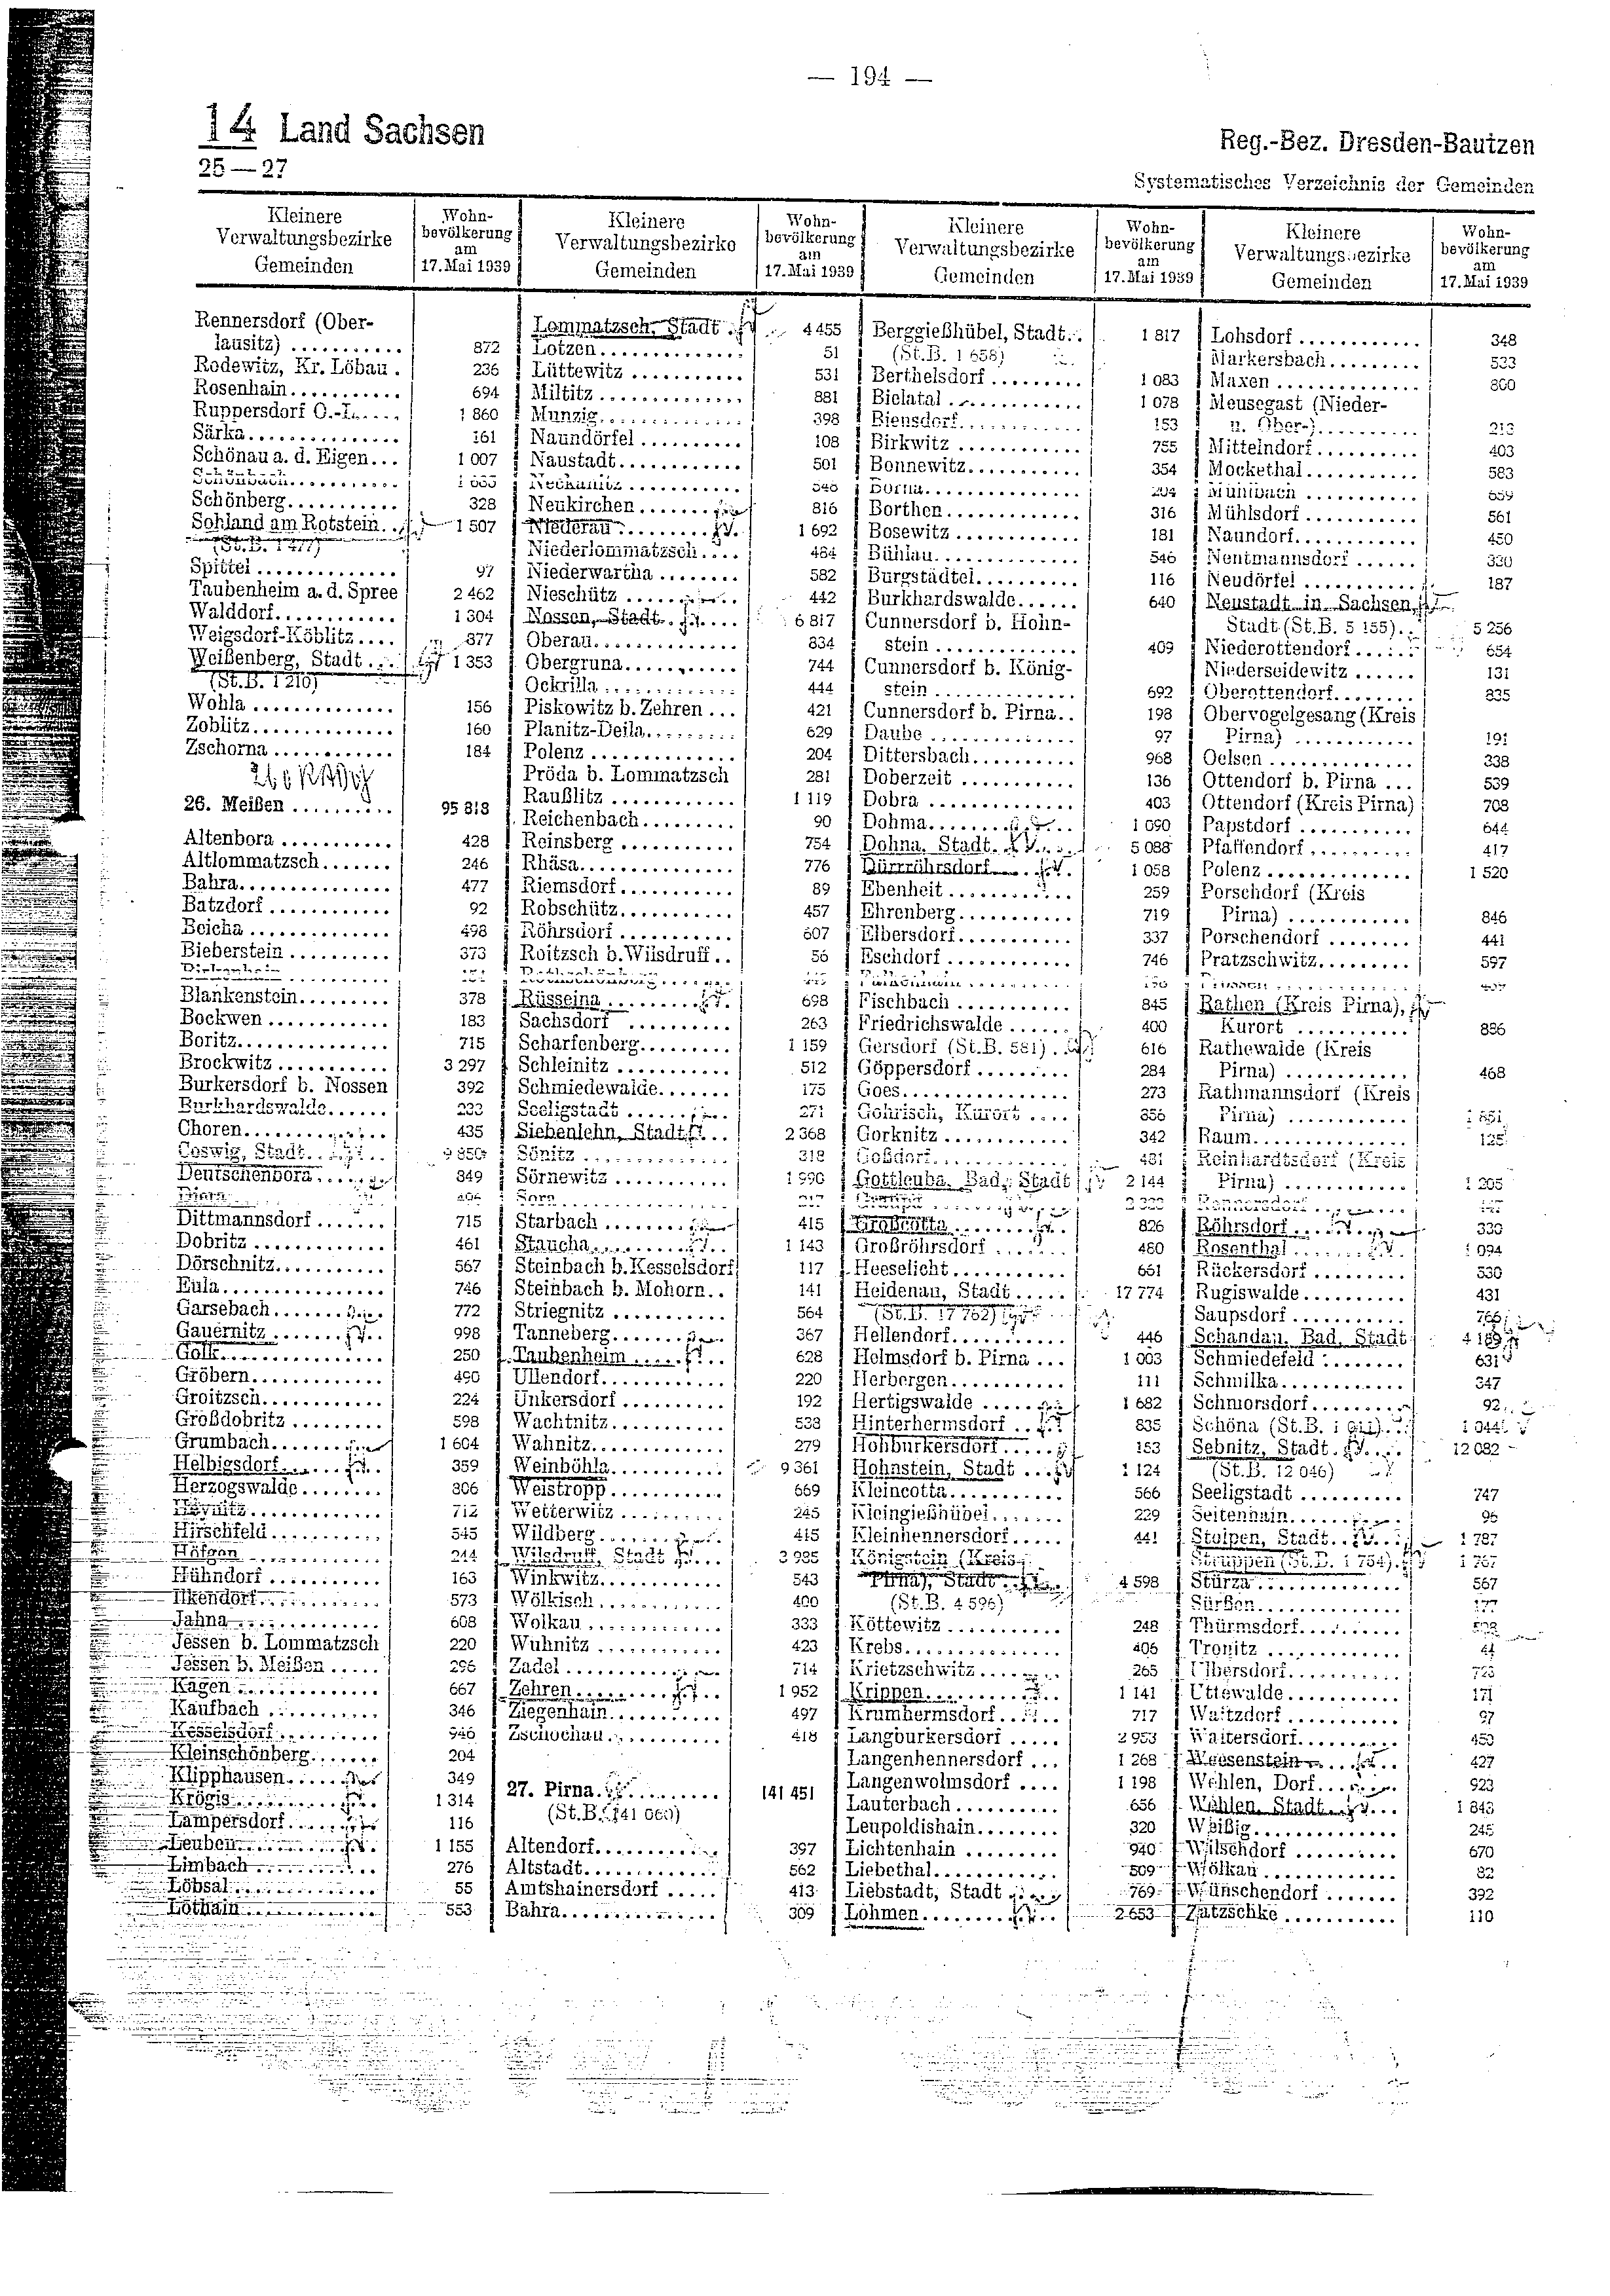 — 194 —
14 Land Sachsen
Reg.-Bez. Dresden-Bautzen
25—27
Systematisches Verzeichnis der Gemeinden
Kleinere Verwaltungsbezirke Gemeinden
Wohn-bevölkerung am 17. Mai 1939
Kleinere Verwaltungsbezirke Gemeinden
Wohn-bevölkerung am 17. Mai 1939
Kleinere Verwaltungsbezirke Gemeinden
Wohn-bevölkerung am 17. Mai 1939
Kleinere Verwaltungsbezirke Gemeinden
Wohn-bevölkerung am 17. Mai 1939
Rennersdorf (Ober-
lausitz) ........... 872
Rodewitz, Kr. Löbau . 236
Rosenhain........... 694
Ruppersdorf O.-L..... 1 860
Särka............... 161
Schönau a. d. Eigen... 1 007
Schönbach...........
Schönberg........... 328
Sohland am Rotstein.. 1 507
(St.B. 1 477)
Spittel ............. 97
Taubenheim a. d. Spree 2 462
Walddorf............ 1 304
Weigsdorf-Köblitz.... 877
Weißenberg, Stadt ... 1 353
(St.B. 1 210)
Wohla ............. 156
Zoblitz.............. 160
Zschorna ............ 184
26. Meißen .......... 95 818
Altenbora ........... 428
Altlommatzsch....... 246
Bahra............... 477
Batzdorf ............ 92
Beicha .............. 498
Bieberstein .......... 373
Blankenstein......... 378
Bockwen ............ 183
Boritz............... 715
Brockwitz ........... 3 297
Burkersdorf b. Nossen 392
Burkhardswalde...... 233
Choren.............. 435
Coswig, Stadt........
Deutschenbora....... 349
Dittmannsdorf ....... 715
Dobritz ............. 461
Dörschnitz........... 567
Eula................ 746
Garsebach........... 772
Gauernitz ........... 998
Golk................ 250
Gröbern............. 490
Groitzsch............ 224
Großdobritz ......... 598
Grumbach........... 1 604
Helbigsdorf.......... 359
Herzogswalde........ 806
712
Hirschfeld........... 545
Höfgen ............. 244
Hühndorf ........... 163
Ilkendorf............ 573
Jahna .............. 608
Jessen b. Lommatzsch 220
Jessen b. Meißen ..... 296
Kagen .............. 667
Kaufbach ........... 346
Kesselsdorf.......... 946
Kleinschönberg....... 204
Klipphausen......... 349
Krögis.............. 1 314
Lampersdorf......... 116
Leuben.............. 1 155
Limbach ............ 276
Löbsal .............. 55
Löthain............. 553
Lommatzsch, Stadt ... 4 455
Lotzen.............. 51
Lüttewitz ........... 531
Miltitz .............. 881
Munzig.............. 398
Naundörfel .......... 108
Naustadt............ 501
Neckanitz ...........
Neukirchen.......... 816
Niederau............ 1 692
Niederlommatzsch.... 484
Niederwartha ........ 582
Nieschütz ........... 442
Nossen, Stadt........ 6 817
Oberau.............. 834
Obergruna........... 744
Ockrilla ............. 444
Piskowitz b. Zehren ... 421
Planitz-Deila......... 629
Polenz .............. 204
Pröda b. Lommatzsch 281
Raußlitz ............ 1 119
Reichenbach......... 90
Reinsberg ........... 754
Rhäsa............... 776
Riemsdorf........... 89
Robschütz........... 457
Röhrsdorf ........... 607
Roitzsch b. Wilsdruff.. 56
Rüsseina ............ 698
Sachsdorf ........... 263
Scharfenberg......... 1 159
Schleinitz ........... 512
Schmiedewalde....... 175
Seeligstadt .......... 271
Siebenlehn, Stadt..... 2 368
Sönitz .............. 318
Sörnewitz ........... 1 990
Sora................
Starbach ............ 415
Staucha............. 1 143
Steinbach b. Kesselsdorf 117
Steinbach b. Mohorn.. 141
Striegnitz ........... 564
Tanneberg........... 367
Taubenheim ......... 628
Ullendorf............ 220
Unkersdorf .......... 192
Wachtnitz........... 533
Wahnitz............. 279
Weinböhla........... 9 361
Weistropp........... 669
Wetterwitz .......... 245
Wildberg............ 415
Wilsdruff, Stadt ...... 3 985
Winkwitz............ 543
Wölkisch............ 400
Wolkau ............. 333
Wuhnitz ............ 423
Zadel............... 714
Zehren.............. 1 952
Ziegenhain........... 497
Zschochau........... 418
27. Pirna............ 141 451
Altendorf............ 397
Altstadt............. 562
Amtshainersdorf ..... 413
Bahra............... 309
Berggießhübel, Stadt.. 1 817
(St.B. 1 658)
Berthelsdorf ......... 1 083
Bielatal ............. 1 078
Biensdorf............ 153
Birkwitz ............ 755
Bonnewitz........... 354
Borna...............
Borthen ............ 316
Bosewitz ............ 181
Bühlau.............. 546
Burgstädtel.......... 116
Burkhardswalde...... 640
Cunnersdorf b. Hohn-
stein .............. 409
Cunnersdorf b. König-
stein .............. 692
Cunnersdorf b. Pirna.. 198
Daube .............. 97
Dittersbach.......... 968
Doberzeit ........... 136
Dobra .............. 403
Dohma.............. 1 090
Dohna, Stadt......... 5 088
Dürrröhrsdorf........ 1 058
Ebenheit ............ 259
Ehrenberg........... 719
Elbersdorf........... 337
Eschdorf ............ 746
Fischbach ........... 845
Friedrichswalde ...... 400
Gersdorf (St.B. 581) .. 616
Göppersdorf ......... 284
Goes................ 273
Gohrisch, Kurort .... 356
Gorknitz ............ 342
Goßdorf............. 431
Gottleuba, Bad, Stadt 2 144
Großcotta ........... 826
Großröhrsdorf ....... 480
Heeselicht........... 661
Heidenau, Stadt ..... 17 774
(St.B. 17 762)
Hellendorf........... 446
Helmsdorf b. Pirna ... 1 003
Herbergen........... 111
Hertigswalde ........ 1 682
Hinterhermsdorf ..... 835
Hohburkersdorf ...... 153
Hohnstein, Stadt ..... 1 124
Kleincotta........... 566
Kleingießhübel....... 229
Kleinhennersdorf..... 441
Königstein (Kreis
Pirna), Stadt ...... 4 598
(St.B. 4 596)
Köttewitz ........... 248
Krebs............... 406
Krietzschwitz ........ 265
Krippen............. 1 141
Krumhermsdorf ...... 717
Langburkersdorf ..... 2 953
Langenhennersdorf ... 1 268
Langenwolmsdorf .... 1 198
Lauterbach.......... 656
Leupoldishain........ 320
Lichtenhain ......... 940
Liebethal............ 509
Liebstadt, Stadt ..... 769
Lohmen............. 2 653
Lohsdorf ............ 348
Markersbach......... 533
Maxen .............. 860
Meusegast (Nieder-
u. Ober-)........... 213
Mittelndorf.......... 403
Mockethal........... 583
Mühlbach ........... 659
Mühlsdorf ........... 561
Naundorf............ 450
Nentmannsdorf ...... 320
Neudörfel ........... 187
Neustadt in Sachsen,
Stadt (St.B. 5 155).. 5 256
Niederottendorf...... 654
Niederseidewitz ...... 131
Oberottendorf........ 835
Obervogelgesang (Kreis
Pirna) ............ 191
Oelsen .............. 338
Ottendorf b. Pirna ... 539
Ottendorf (Kreis Pirna) 708
Papstdorf ........... 644
Pfaffendorf .......... 417
Polenz .............. 1 520
Porschdorf (Kreis
Pirna) ............ 846
Porschendorf ........ 441
Pratzschwitz......... 597
Rathen (Kreis Pirna),
Kurort ............ 836
Rathewalde (Kreis
Pirna) ............ 468
Rathmannsdorf (Kreis
Pirna) ............
Raum............... 125
Reinhardtsdorf (Kreis
Pirna) ............ 1 205
Röhrsdorf ........... 330
Rosenthal ........... 1 094
Rückersdorf ......... 530
Rugiswalde .......... 431
Saupsdorf ........... 766
Schandau, Bad, Stadt
Schmiedefeld ........ 631
Schmilka............ 347
Schmorsdorf......... 92
Schöna (St.B. 1 011)... 1 044
Sebnitz, Stadt........ 12 082
(St.B. 12 046)
Seeligstadt .......... 747
Seitenhain........... 96
Stolpen, Stadt........ 1 787
Struppen (St.B. 1 754). 1 767
Stürza .............. 567
Sürßen.............. 177
Thürmsdorf..........
Tronitz .............
Ulbersdorf........... 723
Uttewalde........... 171
Waitzdorf ........... 97
Waltersdorf.......... 453
Weesenstein ......... 427
Wehlen, Dorf........ 923
Wehlen, Stadt........ 1 843
Weißig.............. 245
Wilschdorf .......... 670
Wölkau ............. 82
Wünschendorf ....... 392
Zatzschke ........... 110